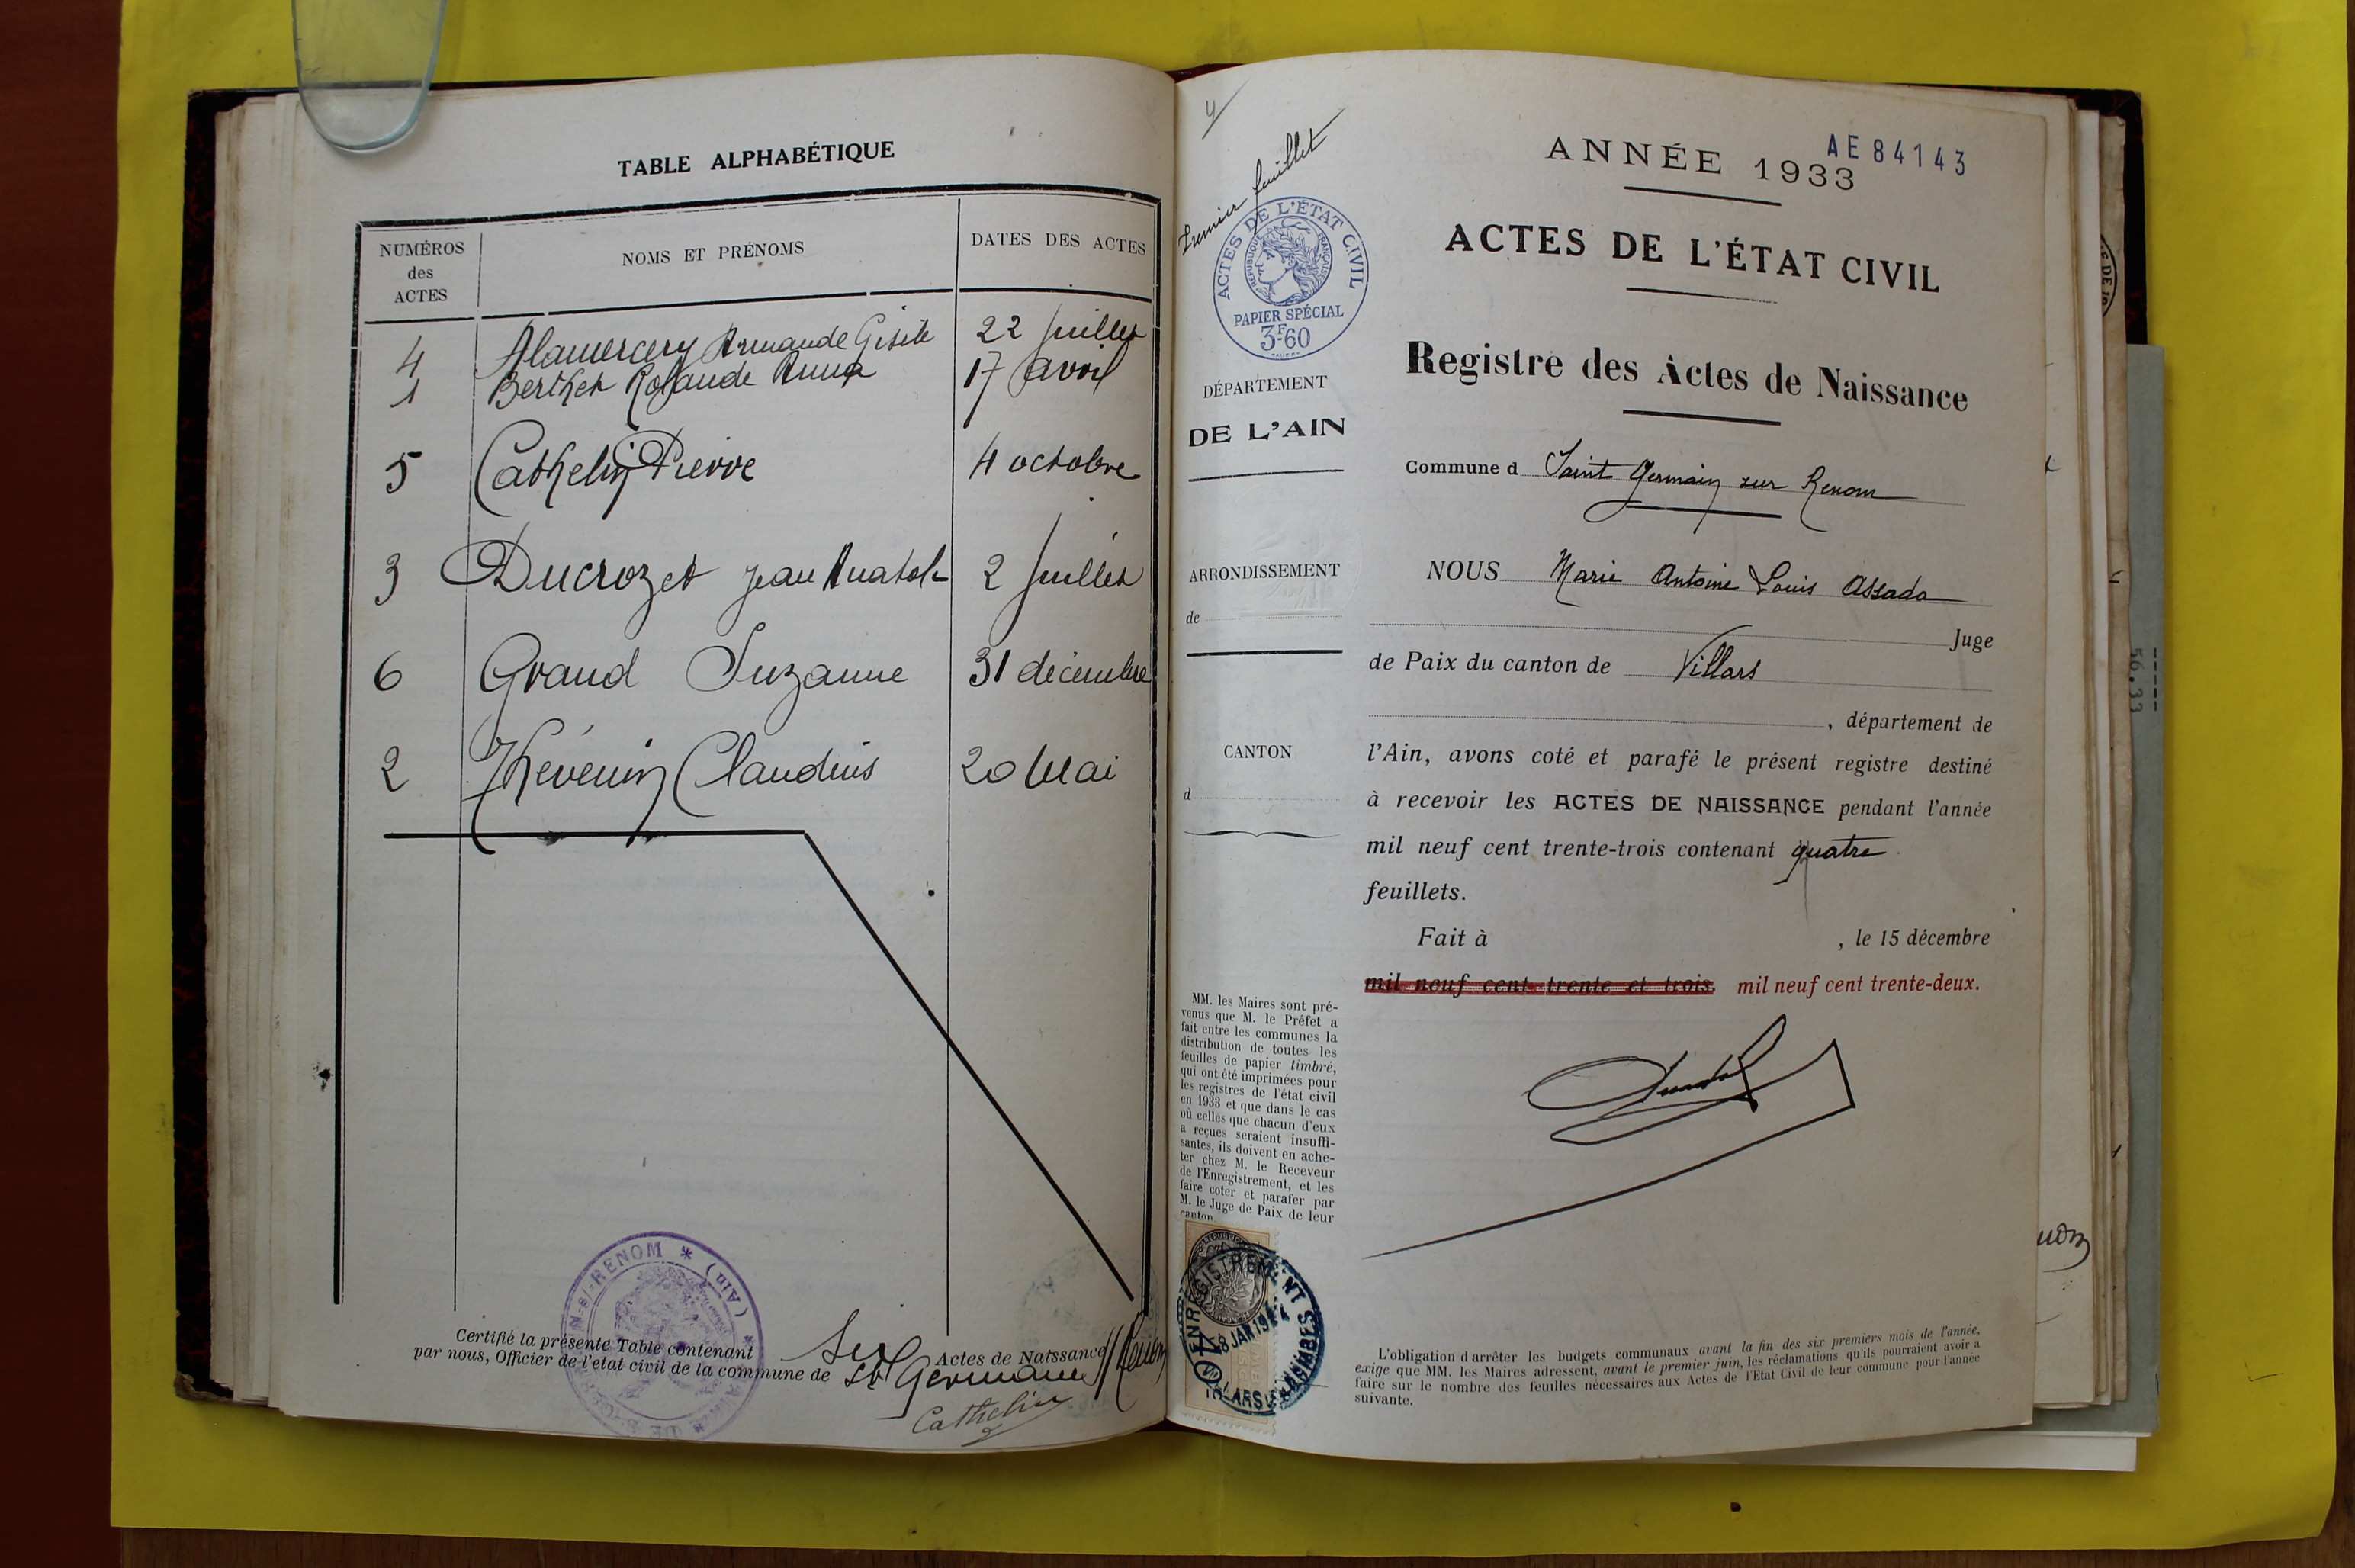 TABLE ALPHABÉTIQUE
NUMÉROS des ACTES NOMS ET PRÉNOMS DATES DES ACTES
4 Alamercery Armande Gisèle 22 Juillet
1 Berthet Rolande Anna 17 avril
5 Cathelin Pierre 4 octobre
3 Ducrozet Jean Anatole 2 Juillet
6 Grand Suzanne 31 décembre
2 Thévenin Claudius 20 Mai
Certifié la présente Table contenant Six Actes de Naissance
par nous, Officier de l'etat civil de la commune de St Germain s/ Renom
Cathelin
N-S/-RENOM * (Ain) *
4
Premier feuillet
ACTES DE L'ÉTAT CIVIL
RÉPUBLIQUE FRANÇAISE
PAPIER SPÉCIAL
3F60
DÉPARTEMENT
DE L'AIN
ARRONDISSEMENT
de
CANTON
d
MM. les Maires sont pré-
venus que M. le Préfet a
fait entre les communes la
distribution de toutes les
feuilles de papier timbré,
qui ont été imprimées pour
les registres de l'état civil
en 1933 et que dans le cas
où celles que chacun d'eux
a reçues seraient insuffi-
santes, ils doivent en ache-
ter chez M. le Receveur
de l'Enregistrement, et les
faire coter et parafer par
M. le Juge de Paix de leur
canton
ENREGISTREMENT
8 JAN 19
VILLARS
AE 84143
ANNÉE 1933
ACTES DE L'ÉTAT CIVIL
Registre des Actes de Naissance
Commune d Saint Germain sur Renom
NOUS Marie Antoine Louis Assada
Juge
de Paix du canton de Villars
, département de
l'Ain, avons coté et parafé le présent registre destiné
à recevoir les ACTES DE NAISSANCE pendant l'année
mil neuf cent trente-trois contenant quatre
feuillets.
Fait à , le 15 décembre
mil neuf cent trente et trois mil neuf cent trente-deux.
L'obligation d'arrêter les budgets communaux avant la fin des six premiers mois de l'année,
exige que MM. les Maires adressent, avant le premier juin, les réclamations qu'ils pourraient avoir à
faire sur le nombre des feuilles nécessaires aux Actes de l'Etat Civil de leur commune pour l'année
suivante.
56.33